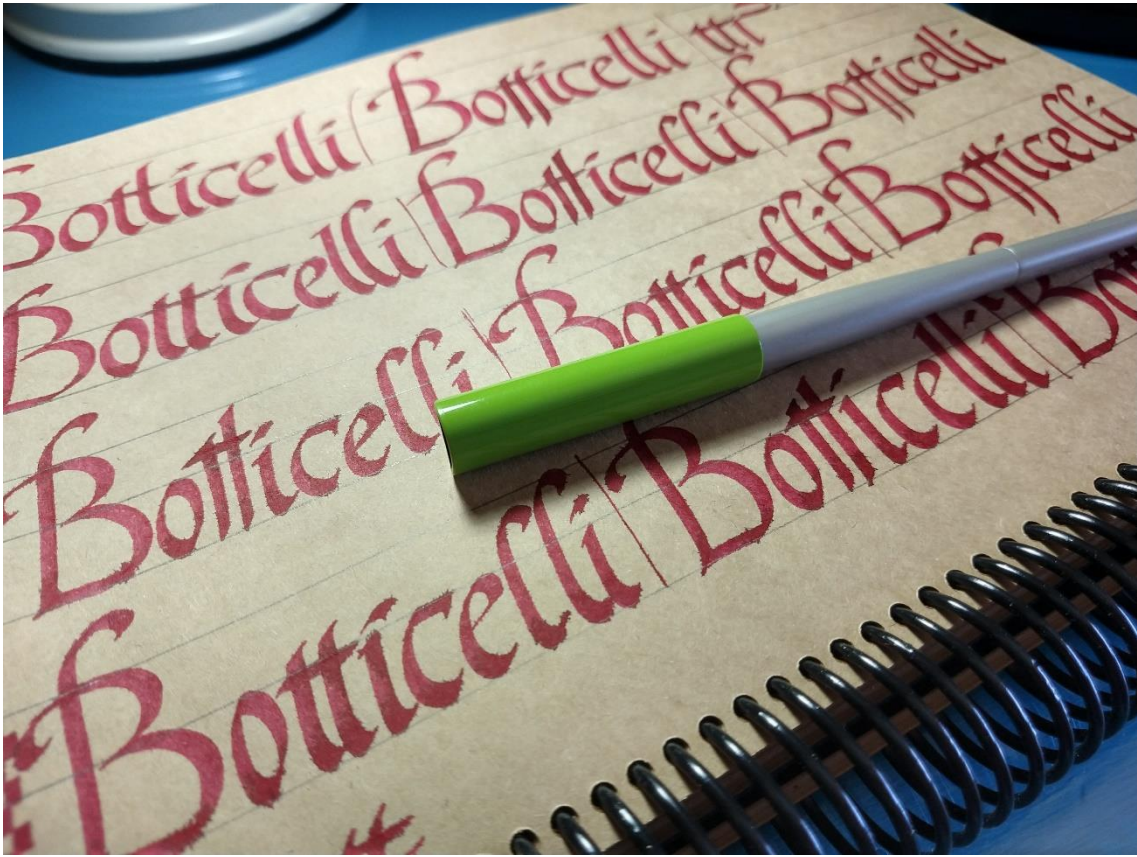 Botticelli Botticelli ttr
Botticelli Botticelli Botticelli
Botticelli Botticelli Botticelli
Botticelli Botticelli
Botticelli